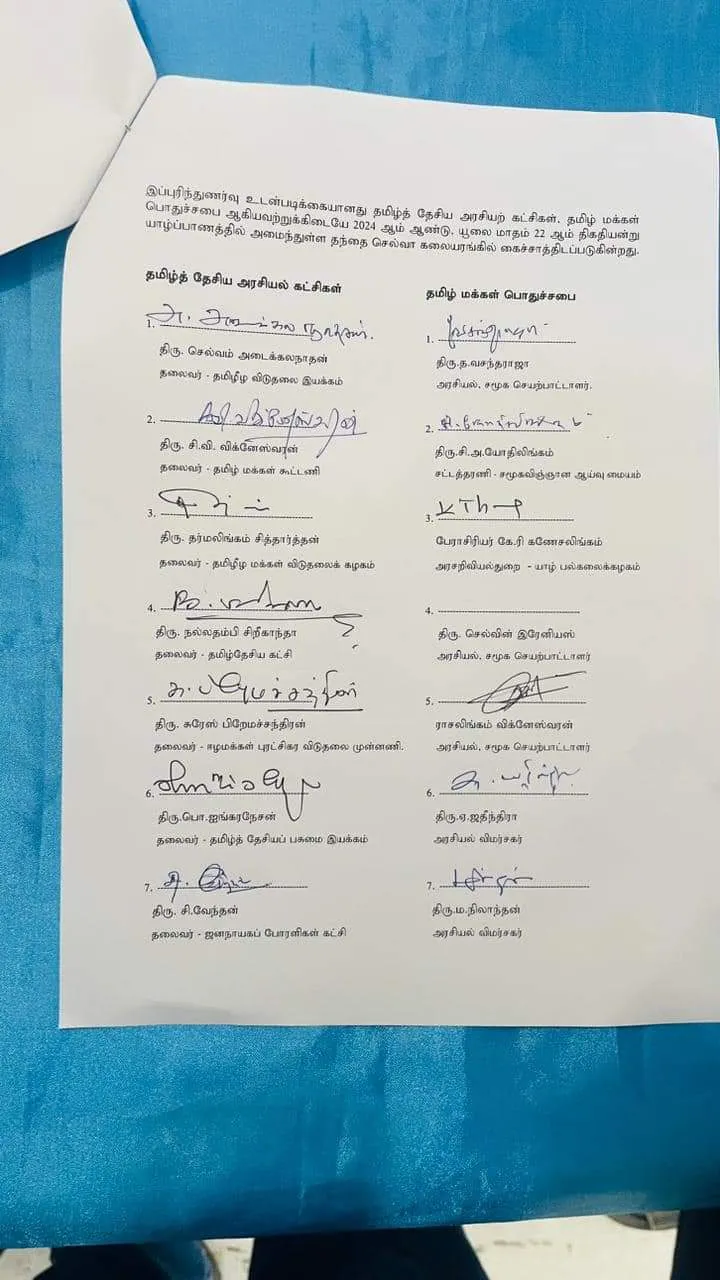 இப்புரிந்துணர்வு உடன்படிக்கையானது தமிழ்த் தேசிய அரசியற் கட்சிகள், தமிழ் மக்கள்
பொதுச்சபை ஆகியவற்றுக்கிடையே 2024 ஆம் ஆண்டு, யூலை மாதம் 22 ஆம் திகதியன்று
யாழ்ப்பாணத்தில் அமைந்துள்ள தந்தை செல்வா கலையரங்கில் கைச்சாத்திடப்படுகின்றது.
தமிழ்த் தேசிய அரசியல் கட்சிகள்
1.
திரு. செல்வம் அடைக்கலநாதன்
தலைவர் - தமிழீழ விடுதலை இயக்கம்
2.
திரு. சி.வி. விக்னேஸ்வரன்
தலைவர் - தமிழ் மக்கள் கூட்டணி
3.
திரு. தர்மலிங்கம் சித்தார்த்தன்
தலைவர் - தமிழீழ மக்கள் விடுதலைக் கழகம்
4.
திரு. நல்லதம்பி சிறீகாந்தா
தலைவர் - தமிழ்தேசிய கட்சி
5.
திரு. சுரேஸ் பிறேமச்சந்திரன்
தலைவர் - ஈழமக்கள் புரட்சிகர விடுதலை முன்னணி.
6.
திரு.பொ.ஐங்கரநேசன்
தலைவர் - தமிழ்த் தேசியப் பசுமை இயக்கம்
7.
திரு. சி.வேந்தன்
தலைவர் - ஜனநாயகப் போராளிகள் கட்சி
தமிழ் மக்கள் பொதுச்சபை
1.
திரு.த.வசந்தராஜா
அரசியல், சமூக செயற்பாட்டாளர்.
2.
திரு.சி.அ.யோதிலிங்கம்
சட்டத்தரணி - சமூகவிஞ்ஞான ஆய்வு மையம்
3.
பேராசிரியர் கே.ரி கணேசலிங்கம்
அரசறிவியல்துறை - யாழ் பல்கலைக்கழகம்
4.
திரு. செல்வின் இரேனியஸ்
அரசியல், சமூக செயற்பாட்டாளர்
5.
ராசலிங்கம் விக்னேஸ்வரன்
அரசியல், சமூக செயற்பாட்டாளர்
6.
திரு.ஏ.ஜதீந்திரா
அரசியல் விமர்சகர்
7.
திரு.ம.நிலாந்தன்
அரசியல் விமர்சகர்